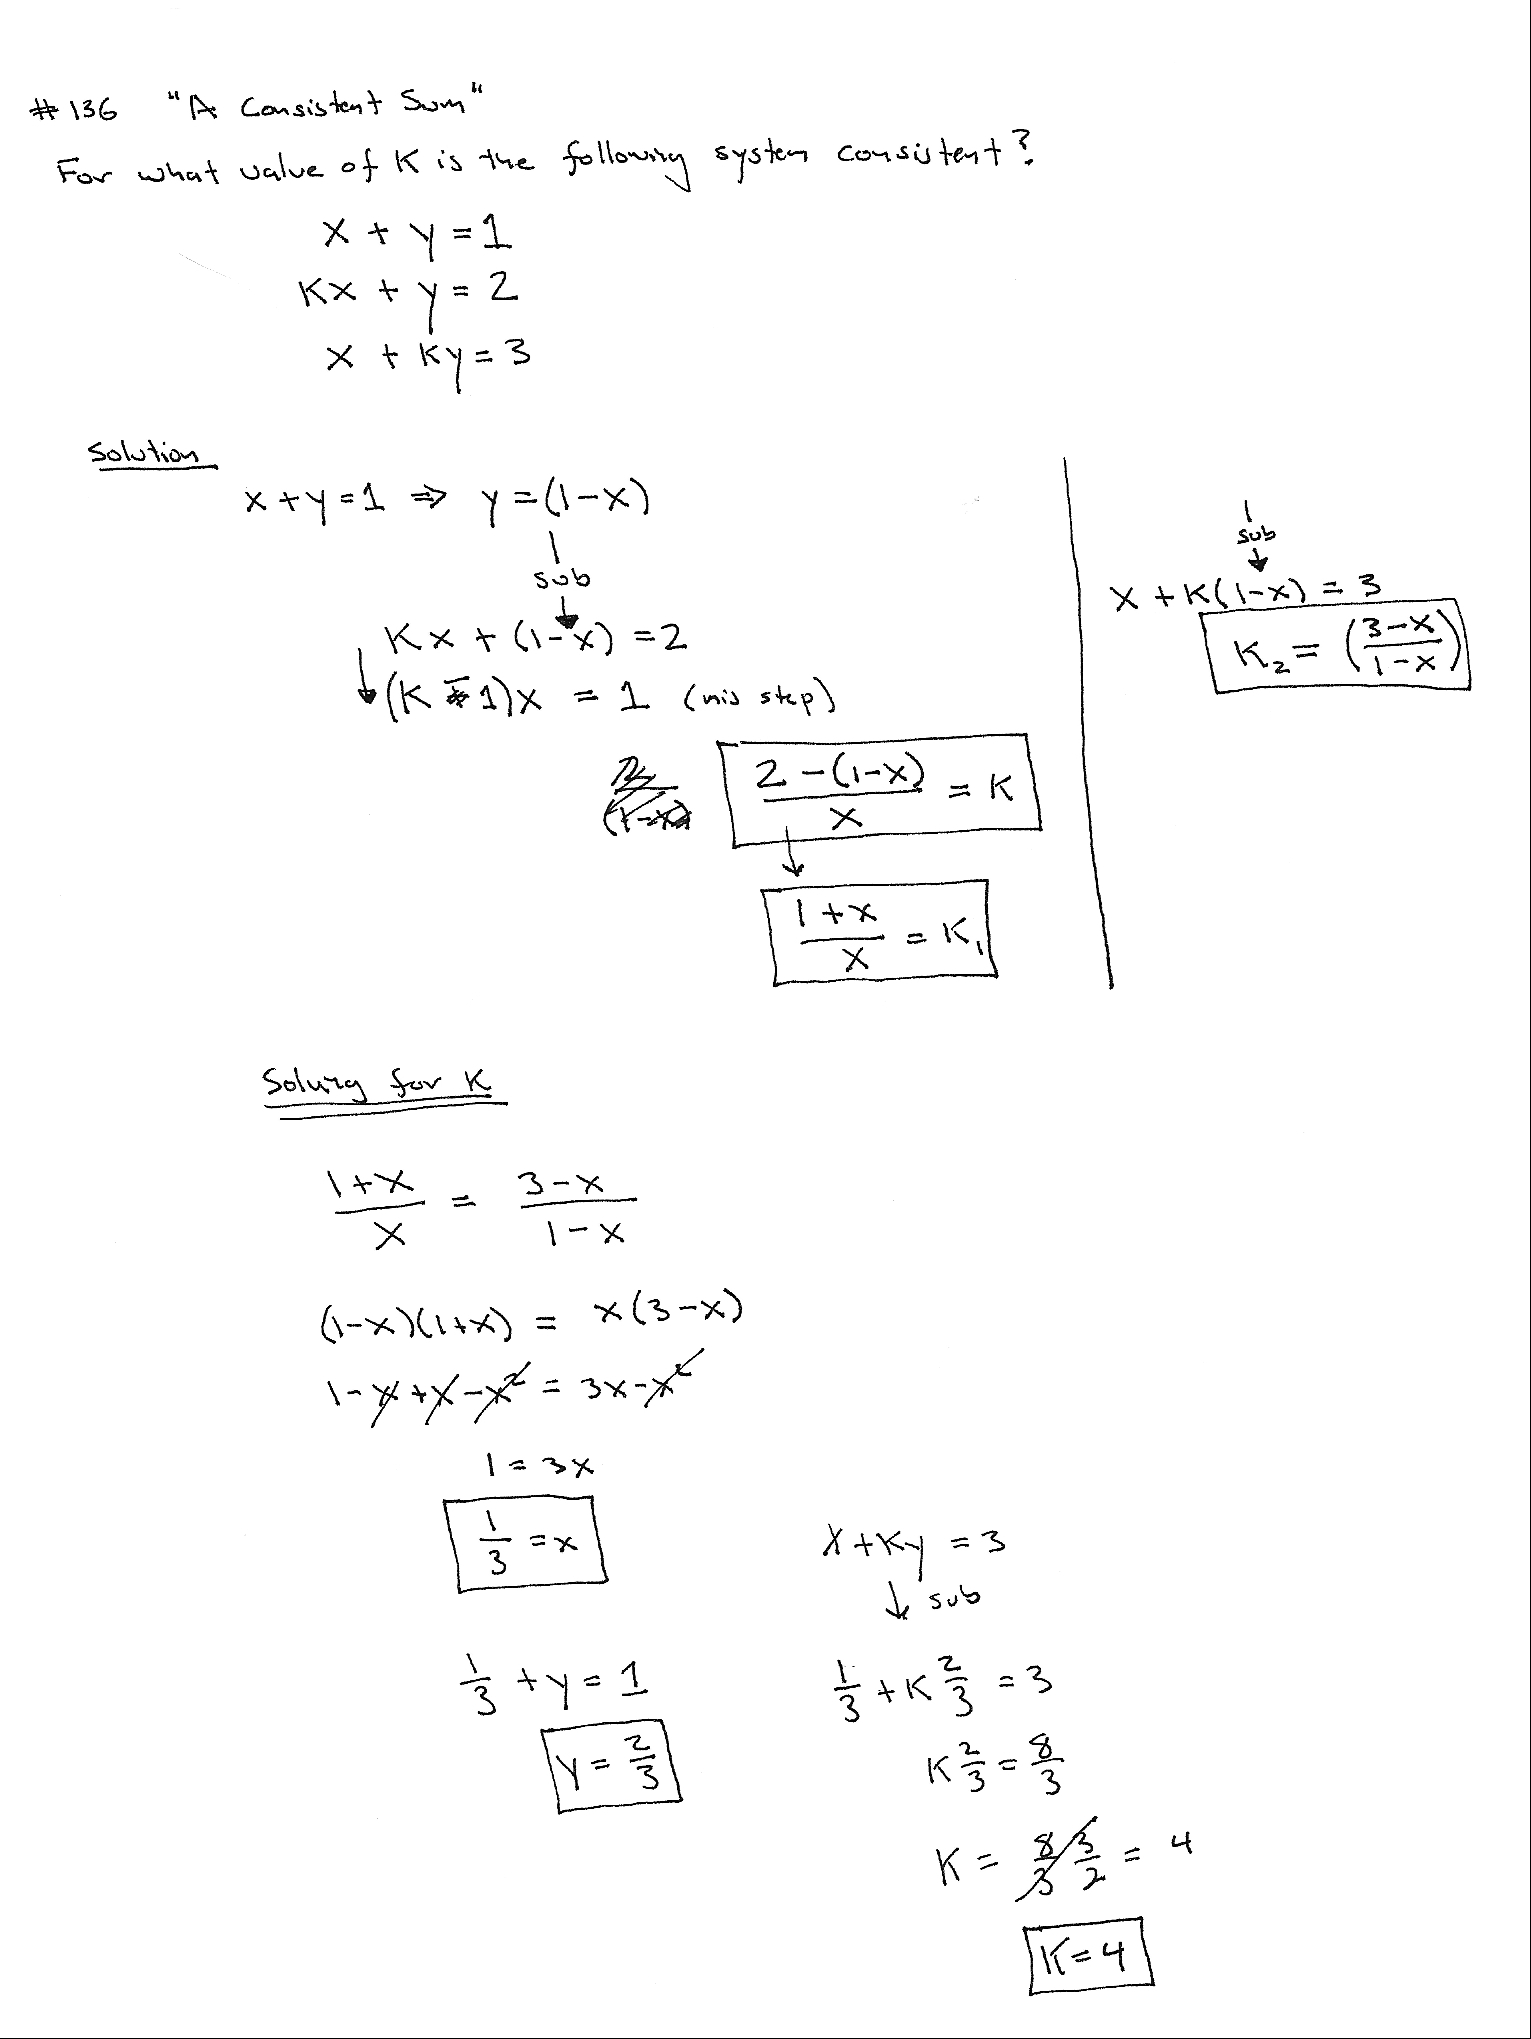 #136 "A Consistent Sum"
For what value of K is the following system consistent?
x + y = 1
Kx + y = 2
x + Ky = 3
Solution
x + y = 1 ⇒ y = (1-x)
sub
Kx + (1-x) = 2
(K - 1)x = 1 (mis step)
2 - (1-x) / x = K
1 + x / x = K₁
sub
x + K(1-x) = 3
K₂ = (3-x / 1-x)
Solving for K
1+x / x = 3-x / 1-x
(1-x)(1+x) = x(3-x)
1 - x + x - x² = 3x - x²
1 = 3x
1/3 = x
1/3 + y = 1
y = 2/3
x + Ky = 3
↓ sub
1/3 + K 2/3 = 3
K 2/3 = 8/3
K = 8/3 3/2 = 4
K = 4